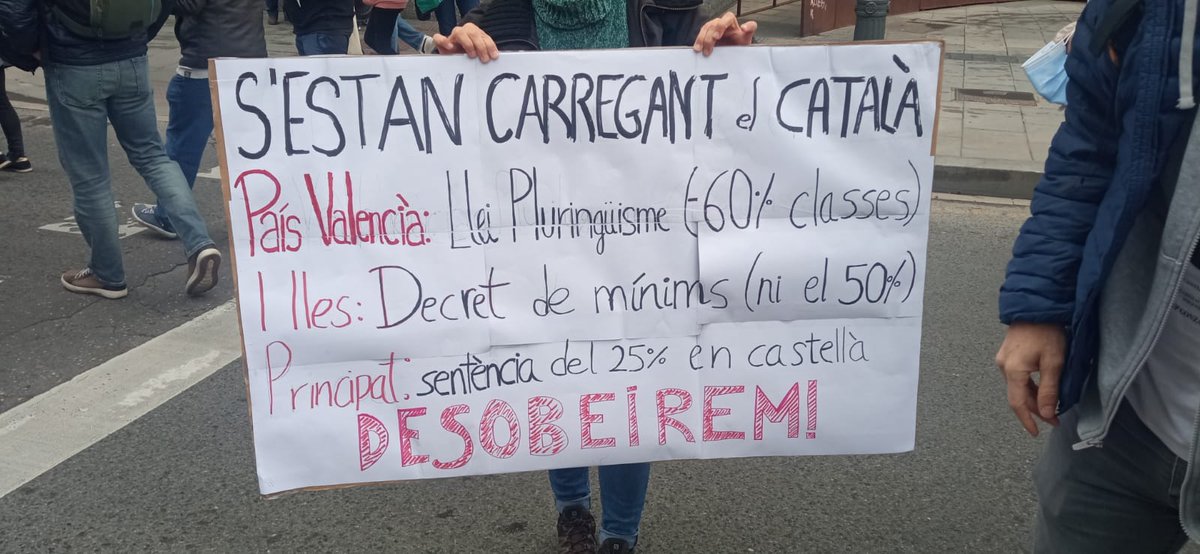 S'ESTAN CARREGANT el CATALÀ
País Valencià: Llei Pluringüisme (-60% classes)
Illes: Decret de mínims (ni el 50%)
Principat: sentència del 25% en castellà
DESOBEÏREM!